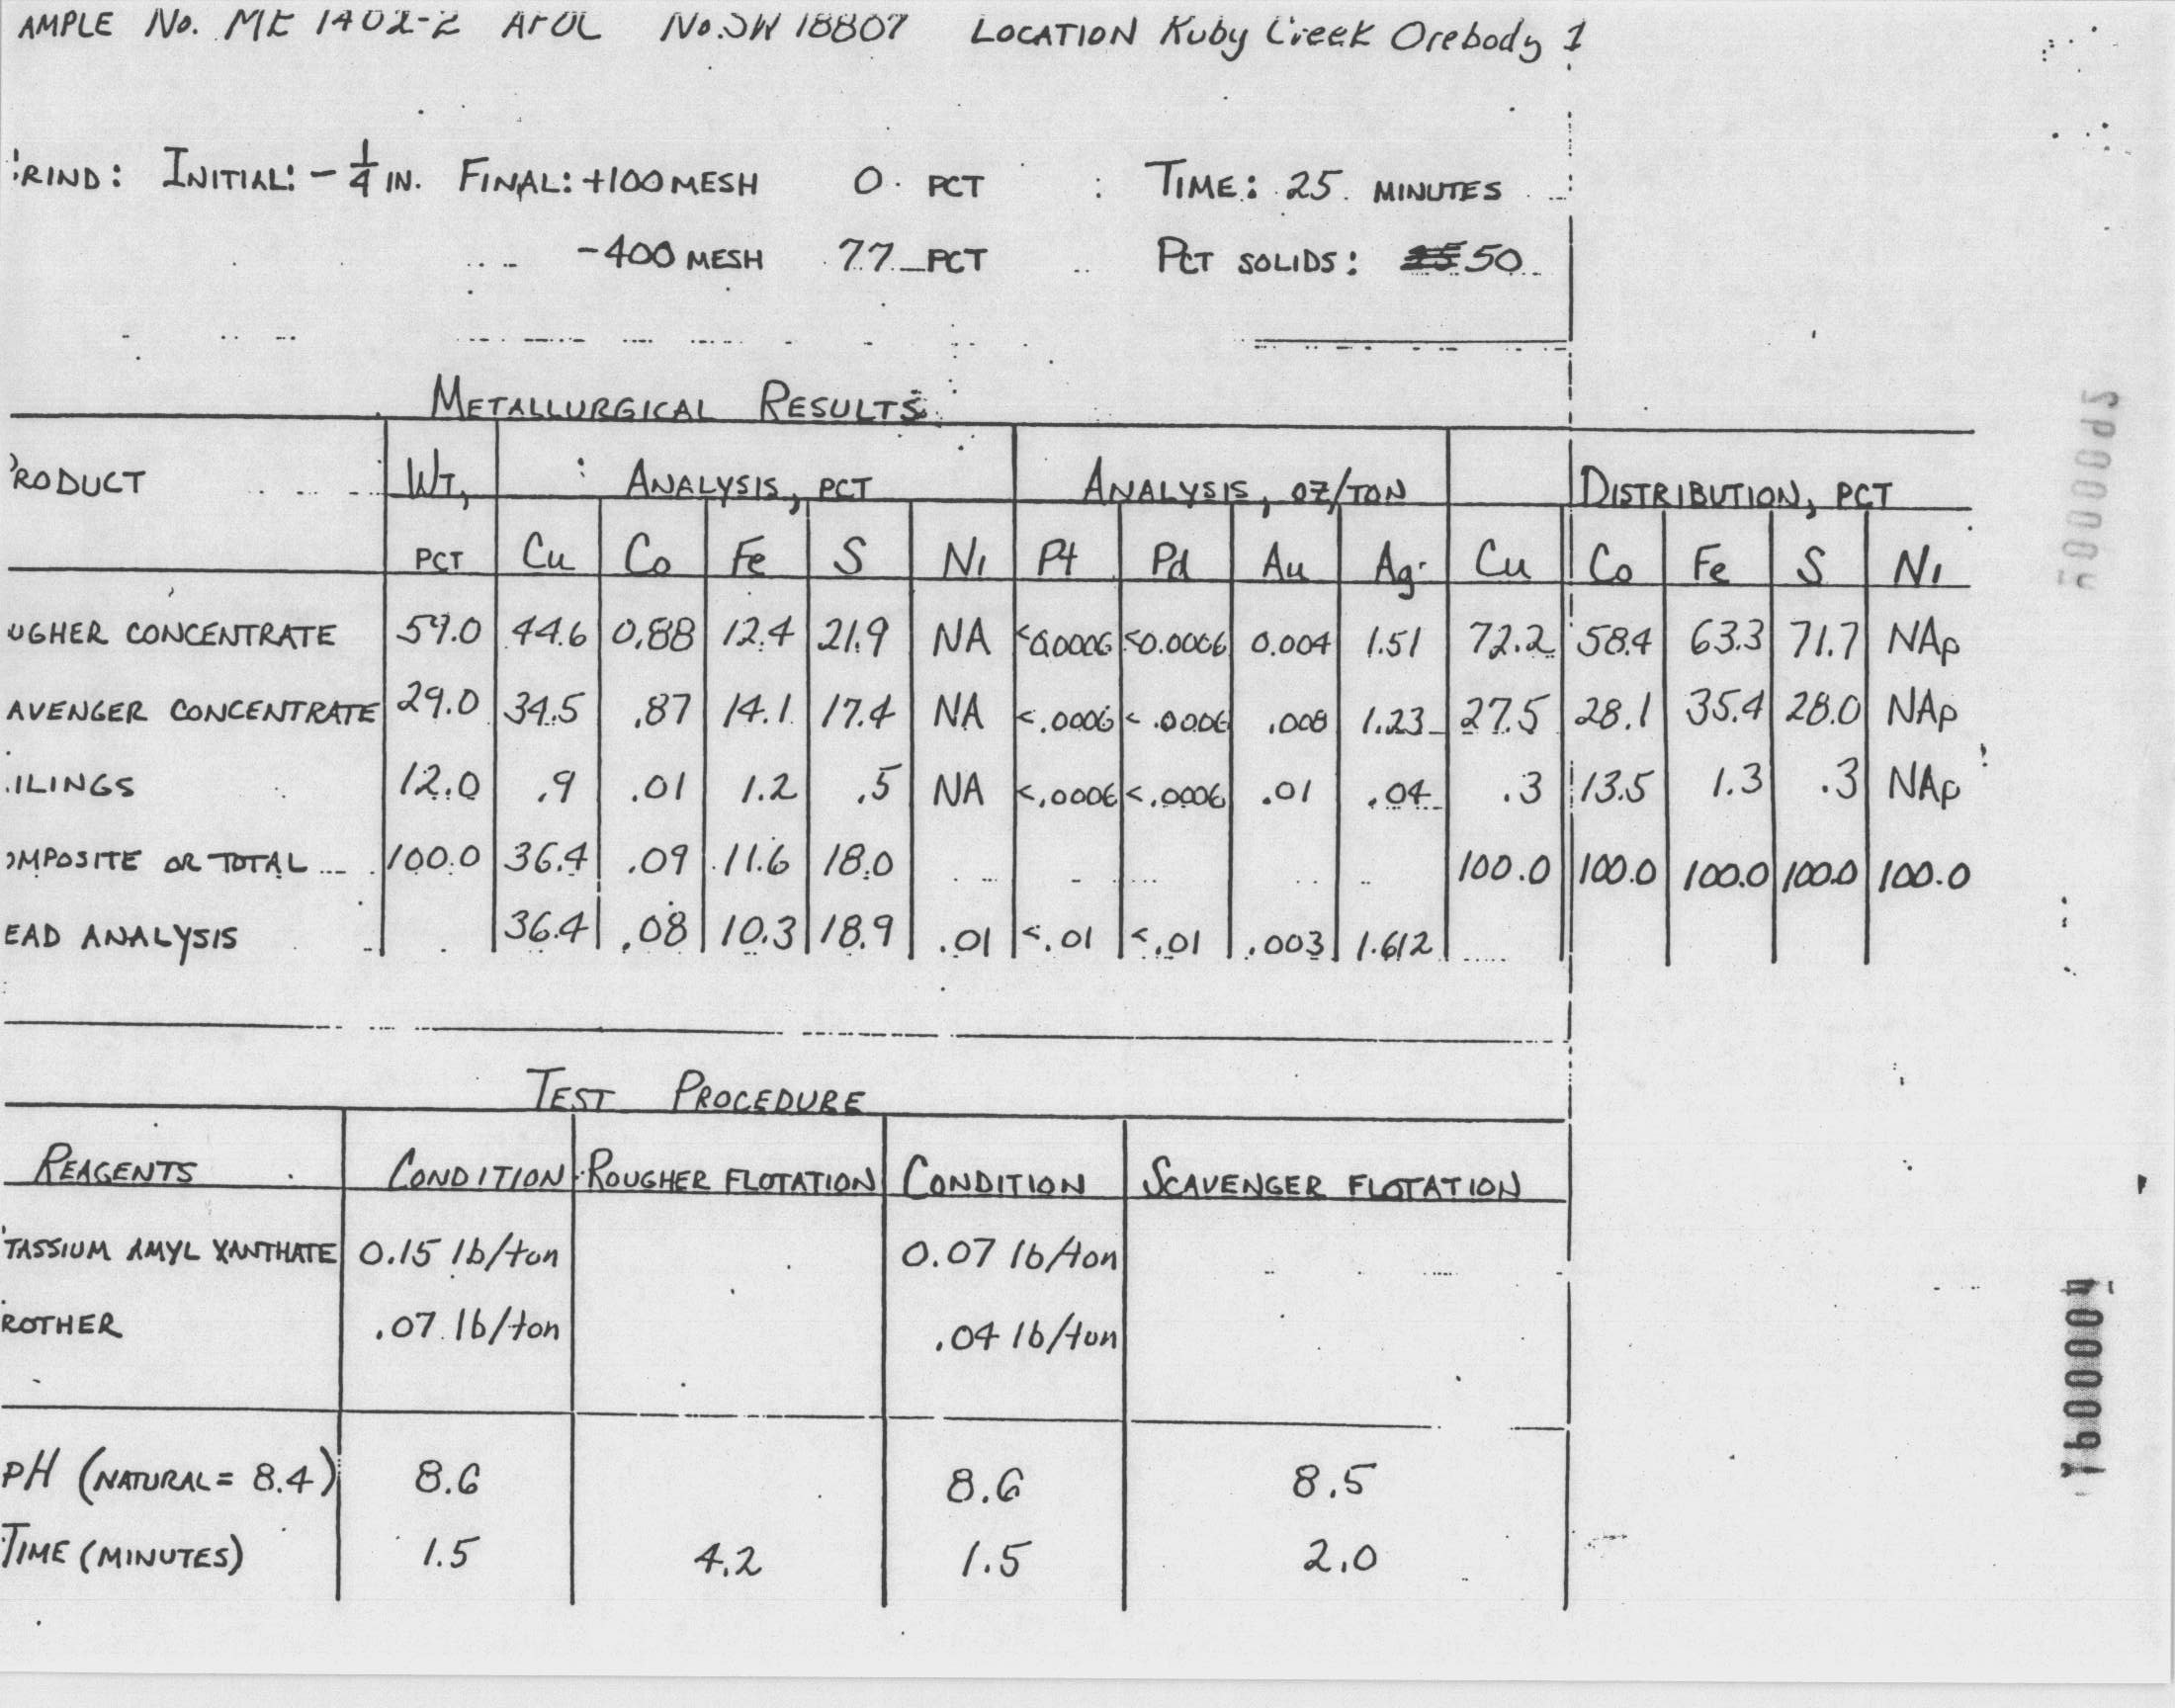 AMPLE No. ME 1402-2 AFOC No. SW 18807 LOCATION Ruby Creek Orebody 1
RIND: INITIAL: - 1/4 IN. FINAL: +100 MESH 0. PCT TIME: 25 MINUTES
-400 MESH 77 PCT PCT SOLIDS: 50
METALLURGICAL RESULTS
RODUCT WT, ANALYSIS, PCT ANALYSIS, OZ/TON DISTRIBUTION, PCT
PCT Cu Co Fe S Ni Pt Pd Au Ag Cu Co Fe S Ni
UGHER CONCENTRATE 59.0 44.6 0.88 12.4 21.9 NA <0.0006 <0.0006 0.004 1.51 72.2 58.4 63.3 71.7 NAp
AVENGER CONCENTRATE 29.0 34.5 .87 14.1 17.4 NA <.0006 <.0006 .008 1.23 27.5 28.1 35.4 28.0 NAp
ILINGS 12.0 .9 .01 1.2 .5 NA <.0006 <.0006 .01 .04 .3 13.5 1.3 .3 NAp
OMPOSITE OR TOTAL 100.0 36.4 .09 11.6 18.0 100.0 100.0 100.0 100.0 100.0
EAD ANALYSIS 36.4 .08 10.3 18.9 .01 <.01 <.01 .003 1.612
TEST PROCEDURE
REAGENTS CONDITION ROUGHER FLOTATION CONDITION SCAVENGER FLOTATION
TASSIUM AMYL XANTHATE 0.15 lb/ton 0.07 lb/ton
ROTHER .07 lb/ton .04 lb/ton
pH (NATURAL = 8.4) 8.6 8.6 8.5
TIME (MINUTES) 1.5 4.2 1.5 2.0